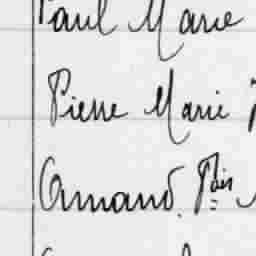 Paul Marie
Pierre Marie
Armand. Fois